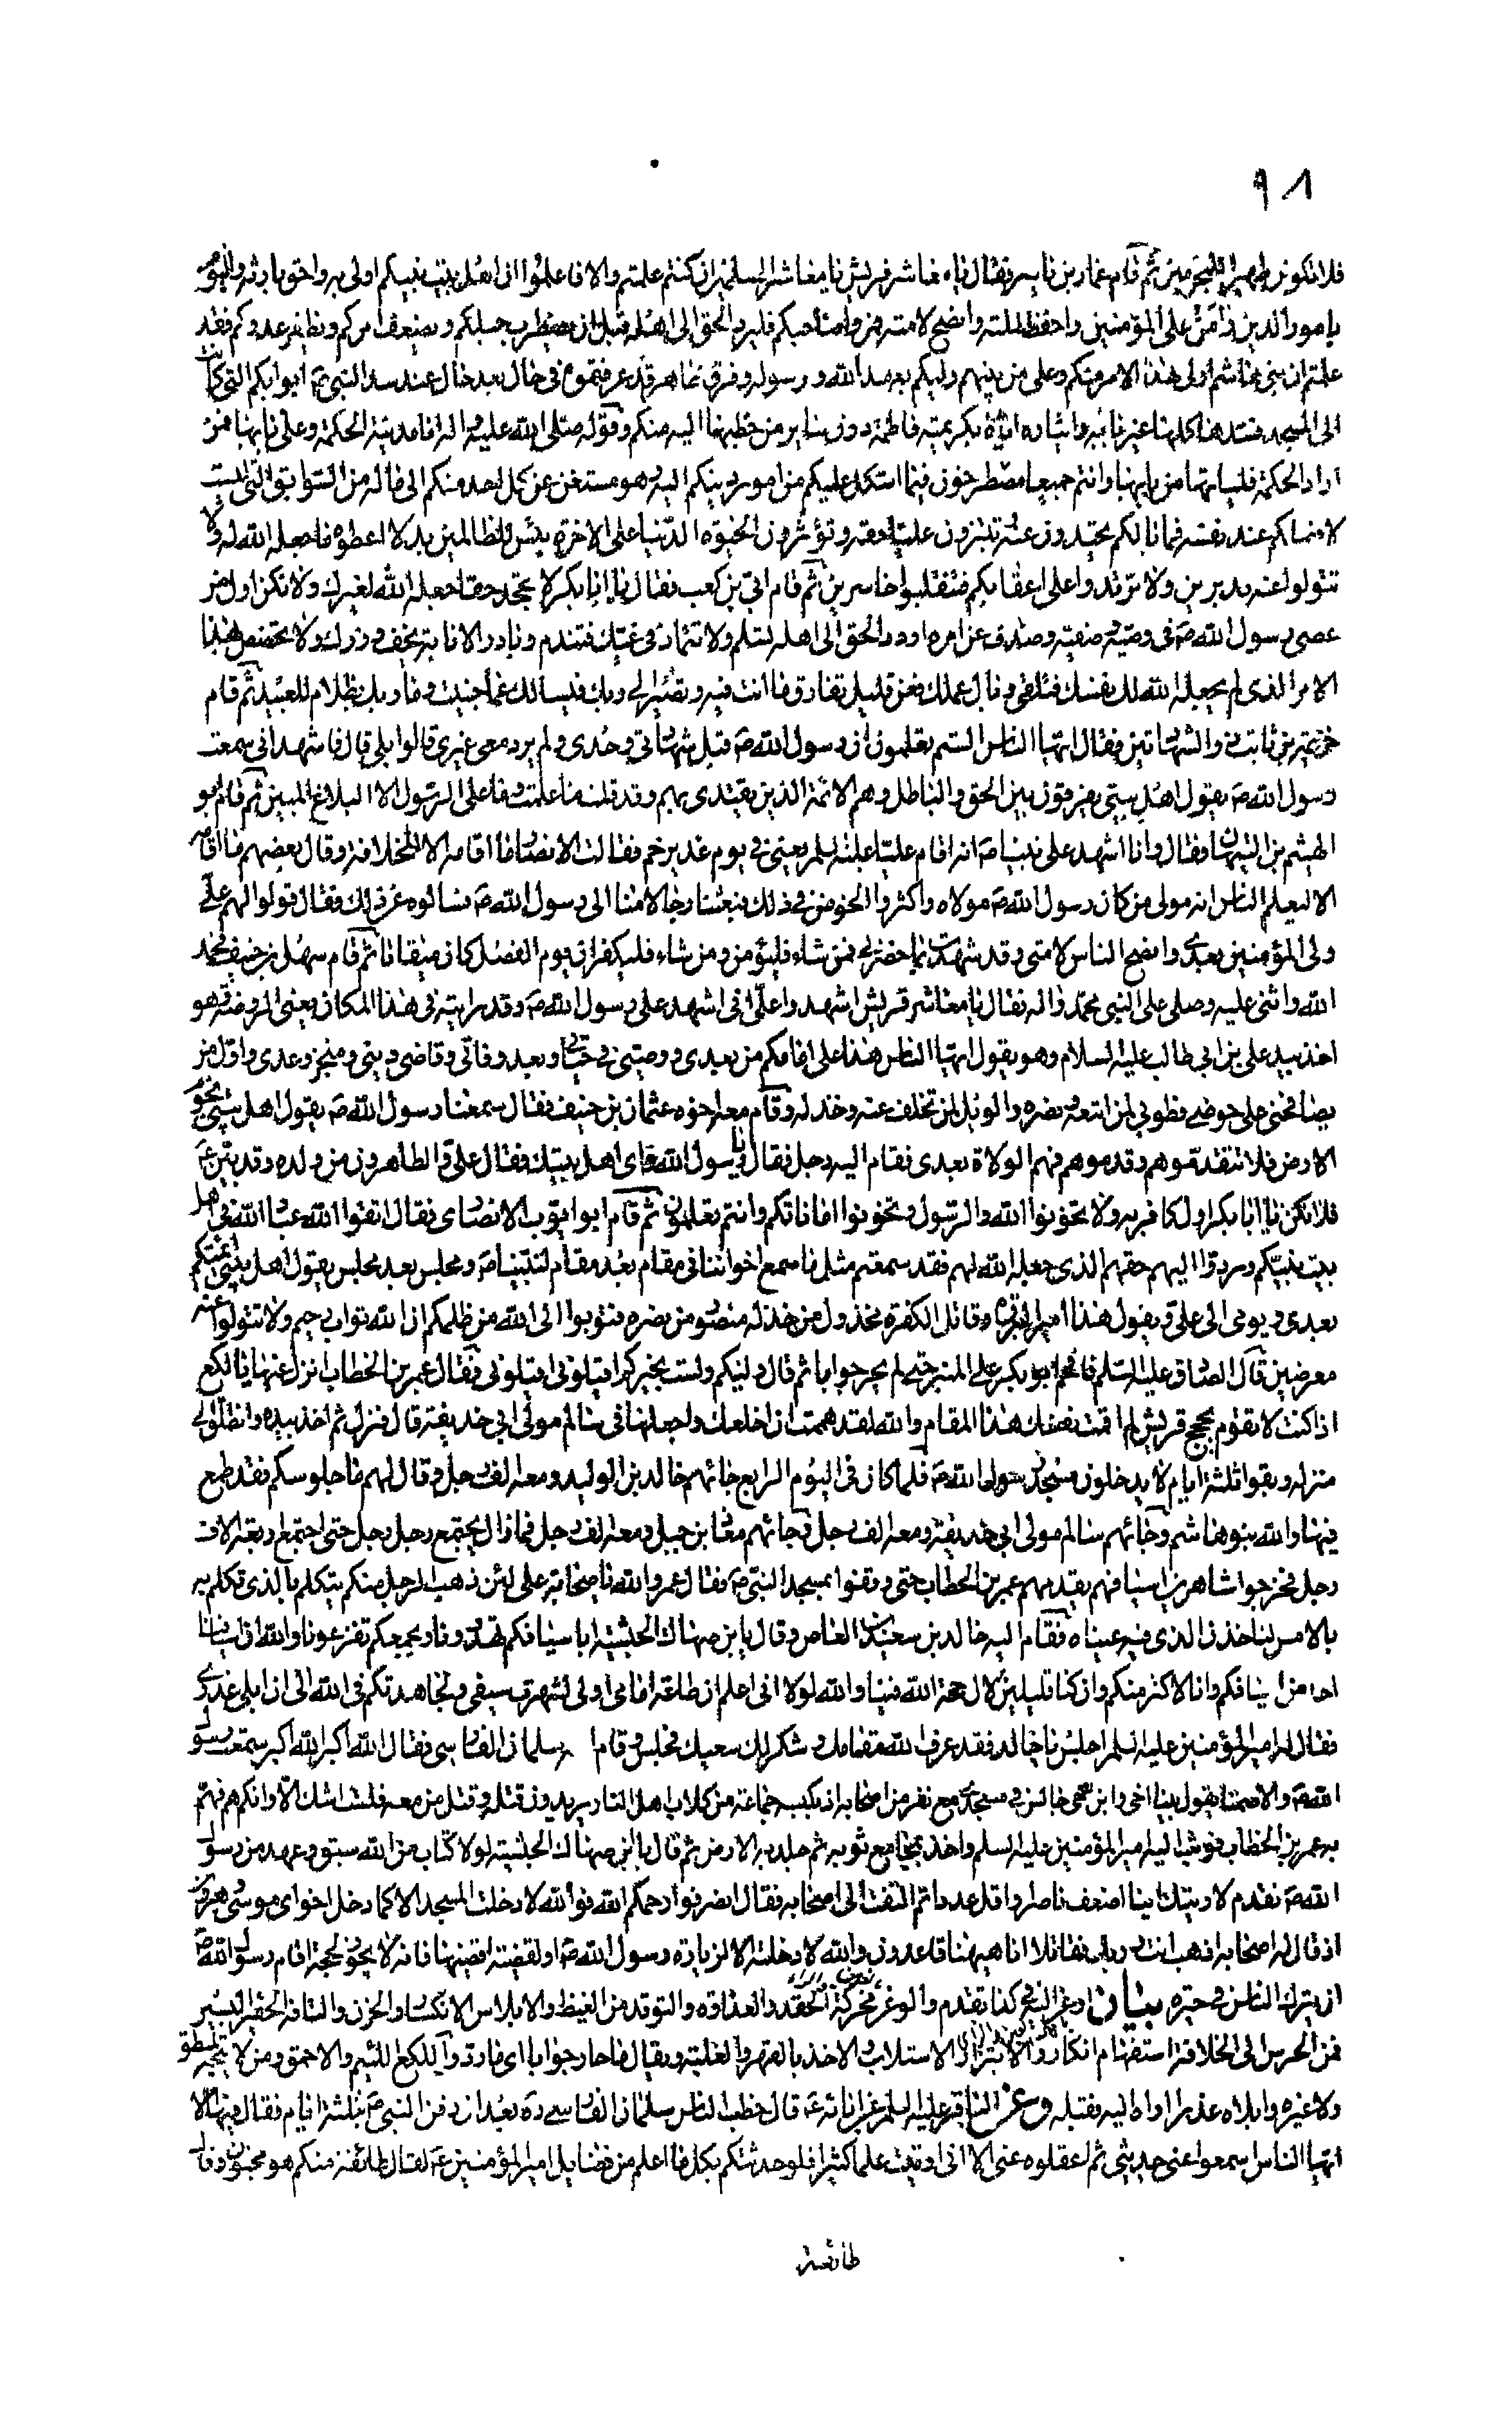 ٩٨
فلا تكونن ظهيرا للمجرمين ثم قام عمار بن ياسر فقال يا معاشر قريش يا معاشر المسلمين ان كنتم علمتم والا فاعلموا ان اهل بيت نبيكم اولى به واحق بارثه واقوم
بامور الدين وآمن على المؤمنين واحفظ لملته وانصح لامته فمروا صاحبكم فليرد الحق الى اهله قبل ان يضطرب حبلكم ويضعف امركم ويظفر عدوكم فقد
علمتم ان بني هاشم اولى بهذا الامر منكم وعلى من بينهم وليكم بعهد الله ورسوله وفرق ظاهر قد عرفتموه في حال بعد حال عند سد النبي ص ابوابكم التي كانت
الى المسجد فسدها كلها غير بابه وايثاره اياه بكريمته فاطمة دون ساير من خطبها اليه منكم وقوله صلى الله عليه واله انا مدينة الحكمة وعلى بابها فمن
اراد الحكمة فلياتها من بابها وانتم جميعا مصطرخون فيما اشكل عليكم من امور دينكم اليه وهو مستغن عن كل احد منكم الى ماله من السوابق التي ليست
لافضلكم عند نفسه فما بالكم تحيدون عنه وتبتزون عليا حقه وتؤثرون الحيوة الدنيا على الاخرة بئس للظالمين بدلا اعطوه ما جعله الله له ولا
تتولوا عنه مدبرين ولا ترتدوا على اعقابكم فتنقلبوا خاسرين ثم قام ابي بن كعب فقال يا ابا بكر لا تجحد حقا جعله الله لغيرك ولا تكن اول من
عصى رسول الله ص في وصيه وصفيه وصدف عن امره اردد الحق الى اهله تسلم ولا تتماد في غيك فتندم وبادر الانابة يخف وزرك ولا تختص بهذا
الامر الذي لم يجعله الله لك نفسك فتلقى وبال عملك فعن قليل تفارق ما انت فيه وتصير الى ربك فيسالك عما جنيت وما ربك بظلام للعبيد ثم قام
خزيمة بن ثابت ذو الشهادتين فقال ايها الناس الستم تعلمون ان رسول الله ص قبل شهادتي وحدي ولم يرد معي غيري قالوا بلى قال فاشهد اني سمعت
رسول الله ص يقول اهل بيتي يفرقون بين الحق والباطل وهم الائمة الذين يقتدى بهم وقد قلت ما علمت وما على الرسول الا البلاغ المبين ثم قام ابو
الهيثم بن التيهان فقال وانا اشهد على نبينا ص انه اقام عليا عليه السلم يعني في يوم غدير خم فقالت الانصار ما اقامه الا للخلافة وقال بعضهم ما اقامه
الا ليعلم الناس انه مولى من كان رسول الله ص مولاه واكثروا الخوض في ذلك فبعثنا رجالا منا الى رسول الله ص فسالوه عن ذلك فقال قولوا لهم علي
ولي المؤمنين بعدي وانصح الناس لامتي وقد شهدت بما حضرني فمن شاء فليؤمن ومن شاء فليكفر ان يوم الفصل كان ميقاتا ثم قام سهل بن حنيف فحمد
الله واثنى عليه وصلى على النبي محمد واله فقال يا معاشر قريش اشهدوا علي اني اشهد على رسول الله ص وقد رايته في هذا المكان يعني الروضة وهو
اخذ بيد علي بن ابي طالب عليه السلام وهو يقول ايها الناس هذا علي امامكم من بعدي ووصيي في حياتي وبعد وفاتي وقاضي ديني ومنجز وعدي واول من
يصافحني على حوضي فطوبى لمن اتبعه ونصره والويل لمن تخلف عنه وخذله وقام معه اخوه عثمان بن حنيف فقال سمعنا رسول الله ص يقول اهل بيتي نجوم
الارض فلا تتقدموهم وقدموهم فهم الولاة بعدي فقام اليه رجل فقال يا رسول الله واي اهل بيتك فقال علي والطاهرون من ولده وقد بين ع
فلا تكن يا ابا بكر اول كافر به ولا تخونوا الله والرسول وتخونوا اماناتكم وانتم تعلمون ثم قام ابو ايوب الانصاري فقال اتقوا الله عباد الله في اهل
بيت نبيكم وردوا اليهم حقهم الذي جعله الله لهم فقد سمعتم مثل ما سمع اخواننا في مقام بعد مقام لنبينا ص ومجلس بعد مجلس يقول اهل بيتي ائمتكم
بعدي ويومى الى علي ويقول هذا امير البررة وقاتل الكفرة مخذول من خذله منصور من نصره فتوبوا الى الله من ظلمكم ان الله تواب رحيم ولا تتولوا عنه
معرضين قال الصادق عليه السلم فافحم ابو بكر على المنبر حتى لم يحر جوابا ثم قال وليتكم ولست بخيركم اقيلوني اقيلوني فقال عمر بن الخطاب انزل عنها يا لكع
اذا كنت لا تقوم بحجج قريش لم اقمت نفسك هذا المقام والله لقد هممت ان اخلعك واجعلها في سالم مولى ابي حذيفة قال فنزل ثم اخذ بيده وانطلق الى
منزله وبقوا ثلثة ايام لا يدخلون مسجد رسول الله ص فلما كان في اليوم الرابع جائهم خالد بن الوليد ومعه الف رجل وقال لهم ما جلوسكم فقد طمع
فيها والله بنو هاشم وجائهم سالم مولى ابي حذيفة ومعه الف رجل وجائهم معاذ بن جبل ومعه الف رجل فما زال يجتمع رجل رجل حتى اجتمع اربعة الاف
رجل فخرجوا شاهرين اسيافهم يقدمهم عمر بن الخطاب حتى وقفوا بمسجد النبي ص فقال عمر والله يا صحابة علي لئن ذهب الرجل منكم يتكلم بالذي تكلم به
بالامس لناخذن الذي فيه عيناه فقام اليه خالد بن سعيد بن العاص وقال يا بن صهاك الحبشية اباسيافكم تهددونا وبجمعكم تفزعونا والله ان اسيافنا
احد من اسيافكم وانا لاكثر منكم وان كنا قليلين لان حجة الله فينا والله لولا اني اعلم ان طاعة امامي اولى لشهرت سيفي ولجاهدتكم في الله الى ان ابلي عذري
فقال له امير المؤمنين عليه السلم اجلس يا خالد فقد عرف الله مقامك وشكر لك سعيك فجلس وقام سلمان الفارسي فقال الله اكبر الله اكبر سمعت رسول
الله ص والا صمتا يقول بينا اخي وابن عمي جالس في مسجدي مع نفر من اصحابه اذ يكبسه جماعة من كلاب اهل النار يريدون قتله وقتل من معه فلست اشك الا وانكم هم فهم
به عمر بن الخطاب فوثب اليه امير المؤمنين عليه السلم واخذ بمجامع ثوبه ثم جلد به الارض ثم قال يا بن صهاك الحبشية لولا كتاب من الله سبق وعهد من رسول
الله ص تقدم لاريتك اينا اضعف ناصرا واقل عددا ثم التفت الى اصحابه فقال انصرفوا رحمكم الله فوالله لا دخلت المسجد الا كما دخل اخواي موسى وهرون
اذ قال له اصحابه اذهب انت وربك فقاتلا انا هيهنا قاعدون والله لا دخلته الا لزيارة رسول الله ص او لقضية اقضيها فانه لا يجوز لحجة اقام رسول الله ص
ان يترك الناس في حيرة بيان والوغر محركة الحقد والعداوة والتوقد من الغيظ والابلاس الانكسار والحزن والتافه الحقير اليسير
فمن الحرس الى الخلافة استفهام انكار والابتزاز الاستلاب والاخذ بالقهر والغلبة ويقال ما احار جوابا اي ما رد واللكع اللئيم والاحمق ومن لا يتجه لمنطق
ولا غيره وابلاه عذرا اداه اليه فقبله وعن الباقر عليه السلم عن ابائه ع قال خطب الناس سلمان الفارسي ره بعد ان دفن النبي ص بثلثة ايام فقال فيها الا
ايها الناس اسمعوا عني حديثي ثم اعقلوه عني الا اني اوتيت علما كثيرا فلو حدثتكم بكل ما اعلم من فضايل امير المؤمنين ع لقال طائفة منكم هو مجنون وقال
طائفة